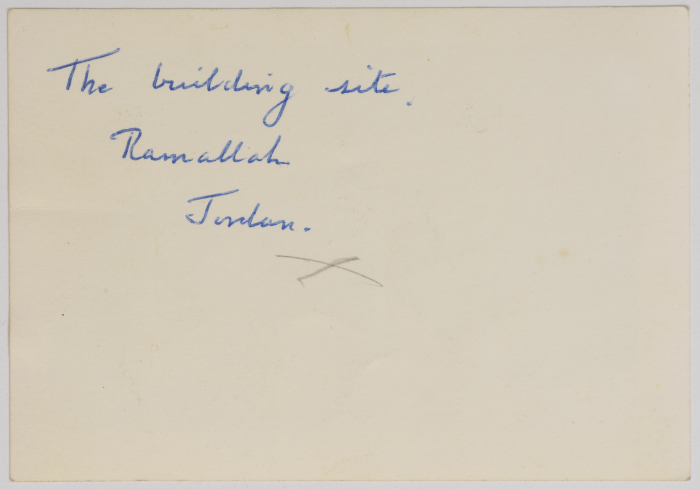 The building site.
Ramallah
Jordan.